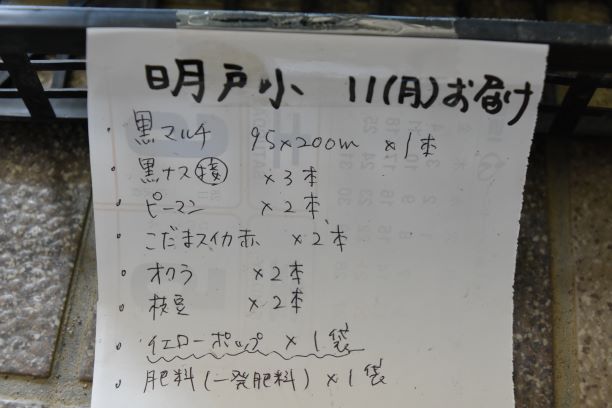 明戸小 11(月)お届け
・黒マルチ 95×200m ×1本
・黒ナス(接) ×3本
・ピーマン ×2本
・こだまスイカ赤 ×2本
・オクラ ×2本
・枝豆 ×2本
・イエローポップ ×1袋
・肥料(一発肥料) ×1袋